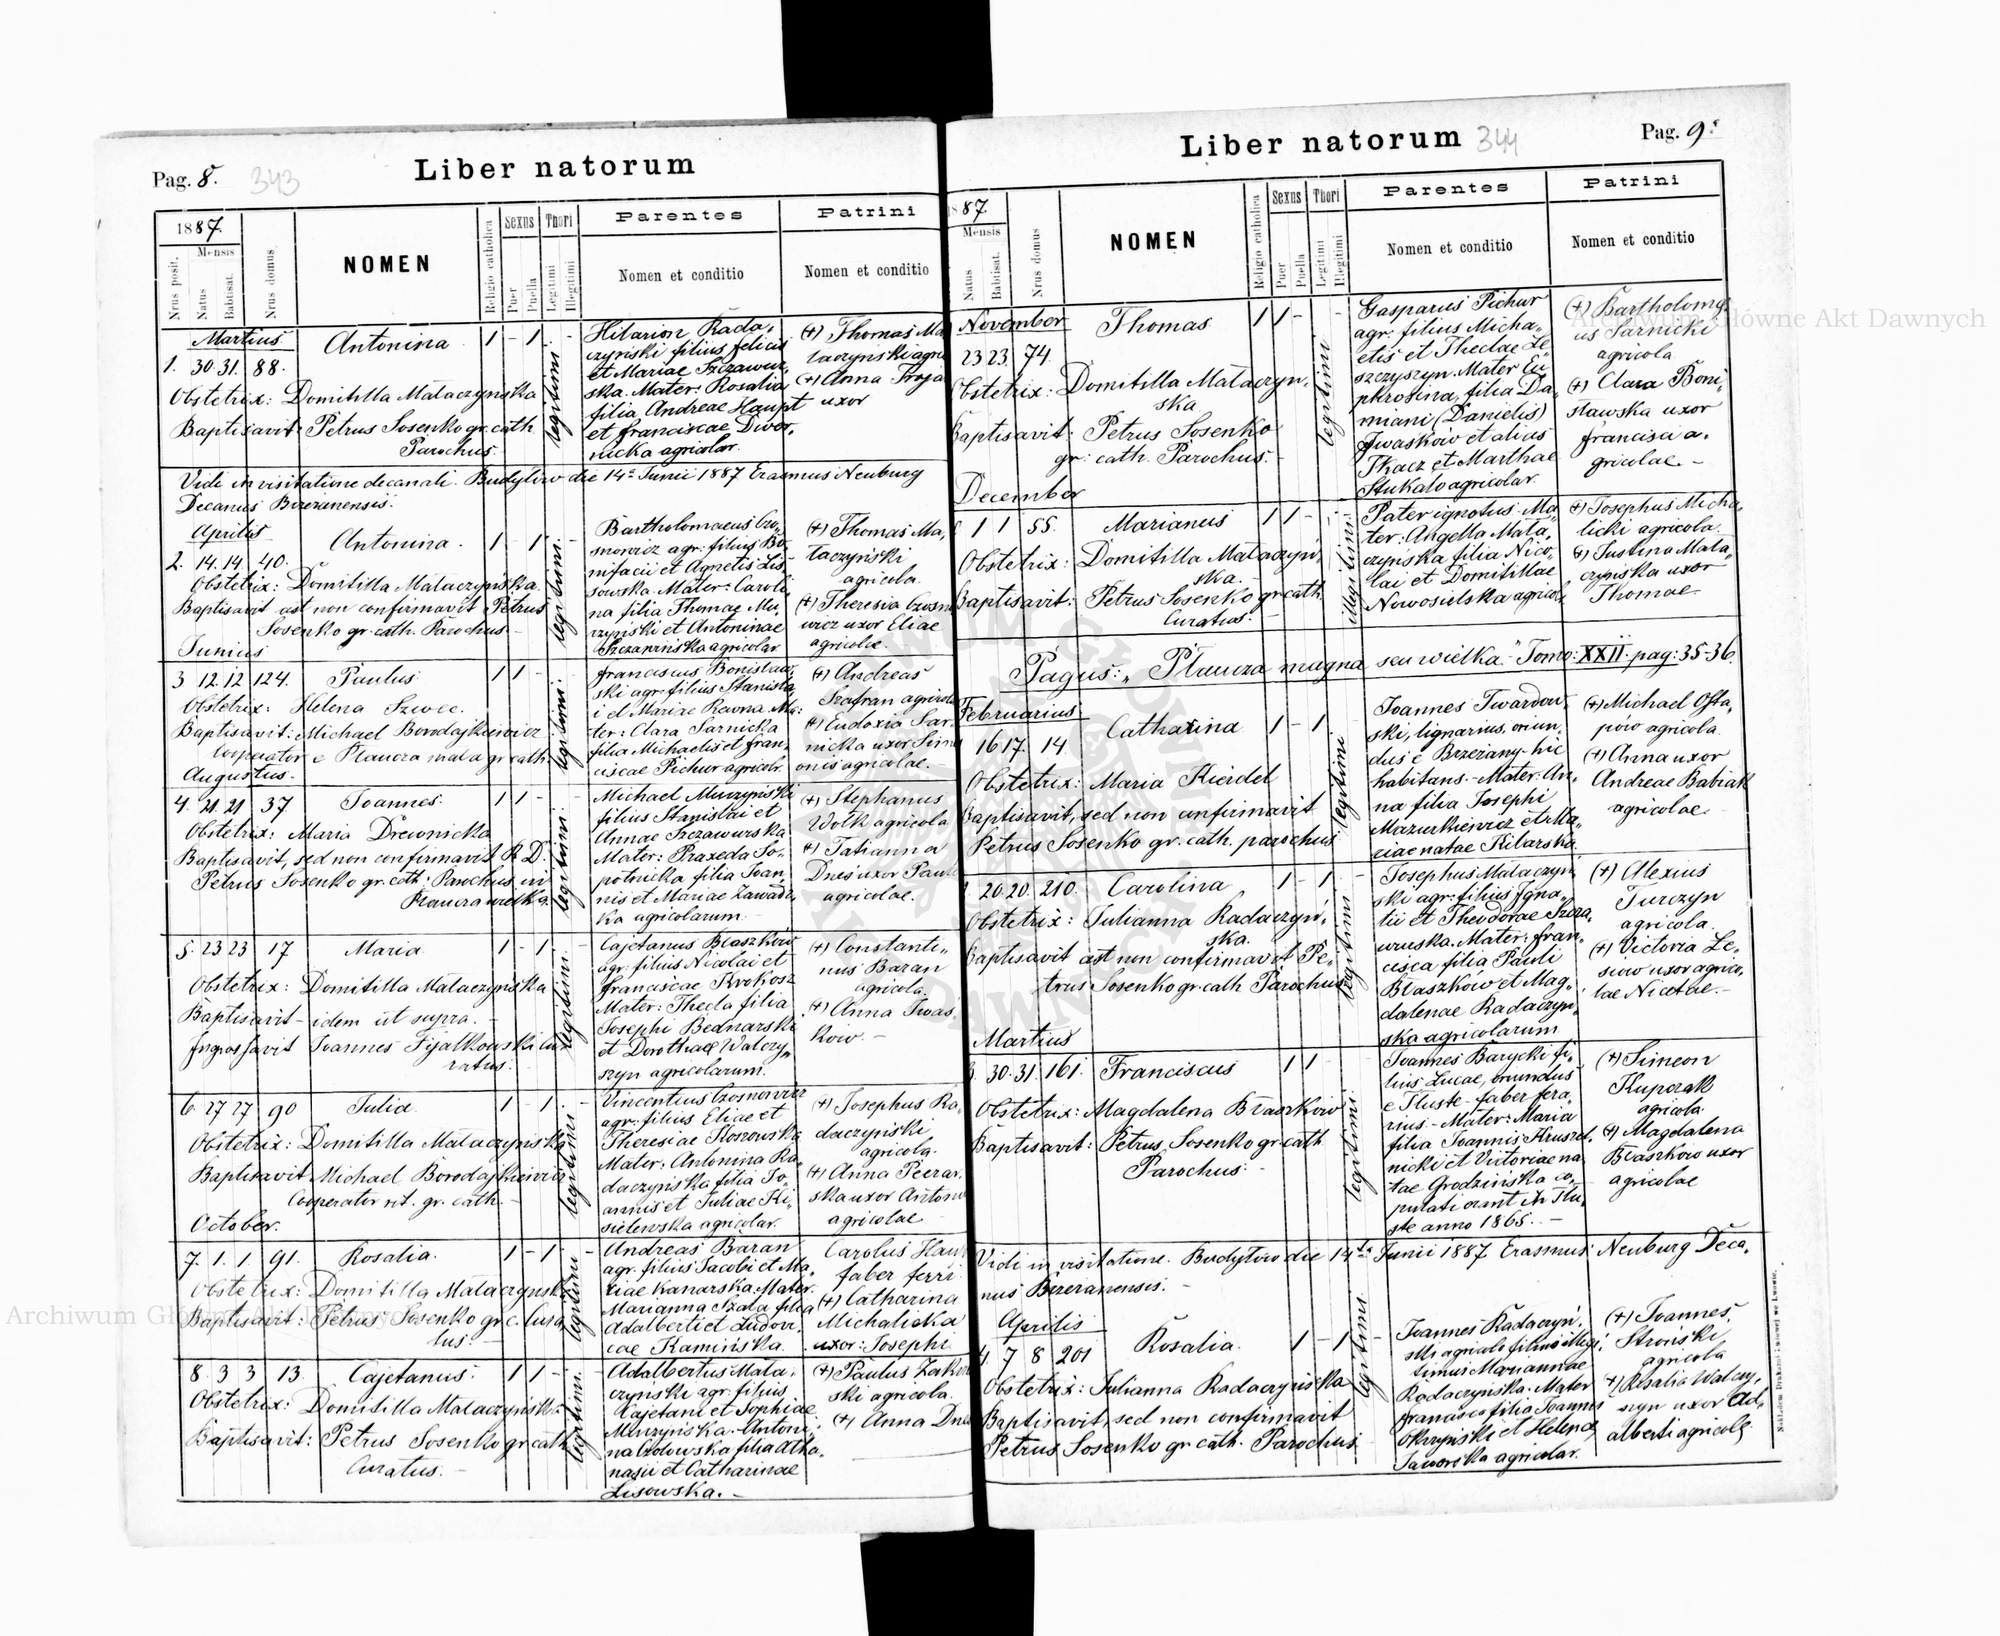 Pag. 8.
343
Liber natorum
1887.
Mensis
Nrus posit.
Natus
Babtisat.
Nrus domus
NOMEN
Religio catholica
Sexus
Puer
Puella
Thori
Legitimi
Illegitimi
Parentes
Nomen et conditio
Patrini
Nomen et conditio
Martius
1. 30. 31. 88.
Antonina
1 - 1 -
legitimi
Obstetrix: Domitilla Mataczyńska
Baptisavit: Petrus Sosenko gr. cath.
Parochus
Hilarion Rada,
czyński filius felicis
et Mariae Szczawur,
ska. Mater: Rosalia
filia Andreae Haupt
et franciscae Dwor,
nicka agricolar.
(+) Thomas Ma
taczyński agri
(+) Anna Troja
uxor
Vidi in visitatione decanali. Budytów die 14a Junii 1887 Erasmus Neuburg
Decanus Brzezanensis.
Aprilis
2. 14. 14. 40.
Antonina.
1 - 1 -
legitimi
Obstetrix: Domitilla Mataczyńska.
Baptisavit ast non confirmavit Petrus
Sosenko gr. cath. Parochus
Bartholomaeus Czo,
snowicz agr: filius Bo
nifacii et Agnetis Lis
sowska. Mater: Caroli
na filia Thomae Mu,
czyński et Antoninae
Szczepińska agricolar.
(+) Thomas Ma,
taczyński
agricola.
(+) Theresia Czosno
wicz uxor Eliae
agricolae.
Junius
3 12. 12 124.
Paulus
1 1 -
legitimi
Obstetrix: Helena Szwec.
Baptisavit: Michael Borodajkiewicz
Cooperator e Plaucza mala gr. cath.
franciscus Bonisław,
ski agr. filius Stanisla
i et Mariae Ravna. Ma:
ter: Clara Sarnicka
filia Michaelis et fran,
ciscae Pichur agricolr.
(+) Andreas
Szafran agricola
(+) Eudoxia Sar
nicka uxor Sime
onis agricolae.
Augustus
4. 21. 21 37
Joannes.
1 1 -
legitimi
Obstetrix: Maria Drewnicka
Baptisavit, sed non confirmavit R. D.
Petrus Sosenko gr. cath: Parochus in
Plaucza wielka.
Michael Muczyński
filius Stanislai et
Annae Szczawurska
Mater: Praxeda So,
potnicka filia Joan,
nis et Mariae Zawadz,
ka agricolarum.
(+) Stephanus
Wołk agricola
(+) Tatianna
Dnes uxor Pauli
agricolae.
5. 23 23 17
Maria.
1 - 1 -
legitimi
Obstetrix: Domitilla Mataczyńska
Baptisavit - idem ut supra.
Ingrossavit Joannes Fijałkowski cu
ratus.
Cajetanus Błaszków
agr. filius Nicolai et
franciscae Krokosz
Mater: Thecla filia
Josephi Bednarski
et Dorotheae Walczy,
szyn agricolarum.
(+) Constanti,
nus Baran
agricola.
(+) Anna Iwas,
ków.
6. 27 27 90
Julia.
1 - 1 -
legitimi
Obstetrix: Domitilla Mataczyńska
Baptisavit Michael Borodajkiewicz
Cooperator rit. gr. cath.
Vincentius Czosnowicz
agr. filius Eliae et
Theresiae Koszowska
Mater: Antonina Ra,
daczyńska filia Jo,
annis et Juliae Ki,
sielewska agricolar.
(+) Josephus Ra,
daczyński
agricola.
(+) Anna Piecar,
ska uxor Antoni
agricolae
October.
7. 1. 1 91.
Rosalia.
1 - 1 -
legitimi
Obstetrix: Domitilla Mataczyńska
Baptisavit: Petrus Sosenko gr. c. Cura,
tus.
Andreas Baran
agr. filius Jacobi et Ma,
riae Kanarska. Mater:
Marianna Szała filia
Adalberti et Ludovi,
cae Kamińska.
Carolus Hau
faber ferri
(+) Catharina
Michalicka
uxor: Josephi
8. 3 3 13.
Cajetanus.
1 1 -
legitimi
Obstetrix: Domitilla Mataczyńska
Baptisavit: Petrus Sosenko gr. cath.
Curatus.
Adalbertus Mata,
czyński agr. filius
Cajetani et Sophiae
Muczyńska. Antoni,
na Gołowska filia Atha,
nasii et Catharinae
Lisowska.
(+) Paulus Zakrze
ski agricola.
(+) Anna Dnes
Liber natorum
344
Pag. 9.
1887.
Mensis
Natus
Babtisat.
Nrus domus
NOMEN
Religio catholica
Sexus
Puer
Puella
Thori
Legitimi
Illegitimi
Parentes
Nomen et conditio
Patrini
Nomen et conditio
November
23 23. 74.
Thomas
1 1 -
legitimi
Obstetrix: Domitilla Mataczyń,
ska
Baptisavit: Petrus Sosenko
gr: cath. Parochus.
Gasparus Pichur
agr. filius Micha,
elis et Theclae Le,
szczyszyn. Mater Eu
phrosina, filia Da,
miani (Danielis)
Jwasków et alias
Tkacz et Marthae
Stukało agricolar.
(+) Bartholomae,
us Sarnicki
agricola
(+) Clara Boni,
sławska uxor
francisci a,
gricolae.
December
1 1 55.
Marianus
1 1 -
illegitimi
Obstetrix: Domitilla Mataczyń,
ska.
Baptisavit: Petrus Sosenko gr. cath.
Curatus.
Pater ignotus. Ma,
ter: Angella Mata,
czyńska filia Nico,
lai et Domitillae
Nowosielska agricol.
(+) Josephus Micha,
licki agricola.
(+) Justina Mata,
czyńska uxor
Thomae
Pagus: „Plaucza magna seu wielka." Tomo: XXII. pag: 35-36.
Februarius
16 17. 14.
Catharina
1 - 1 -
legitimi
Obstetrix: Maria Kierdel
Baptisavit, sed non confirmavit
Petrus Sosenko gr. cath. parochus.
Joannes Twardow,
ski, lignarius, oriun,
dus e Brzeżany hic
habitans. - Mater: An,
na filia Josephi
Mazurkiewicz et Ma,
riae natae Kilarska.
(+) Michael Osta,
pów agricola.
(+) Anna uxor
Andreae Babiak
agricolae
20. 20. 210.
Carolina,
1 - 1 -
legitimi
Obstetrix: Julianna Radaczyń,
ska.
Baptisavit ast non confirmavit Pe,
trus Sosenko gr. cath. Parochus
Josephus Mataczyń,
ski agr. filius Igna,
tii et Theodorae Szcza,
wurska. Mater: fran,
cisca filia Pauli
Błaszków et Mag,
dalenae Radaczyń,
ska agricolarum
(+) Alexius
Turczyn
agricola.
(+) Victoria Le,
siow uxor agrico,
lae Nicetae.
Martius
3. 30. 31. 161.
Franciscus
1 1 -
legitimi
Obstetrix: Magdalena Błaszków
Baptisavit: Petrus Sosenko gr. cath
Parochus.
Joannes Barycki fi,
lius Lucae, oriundus
e Tłuste - faber fera,
rius. - Mater: Maria
filia Joannis Kruszel,
nicki et Victoriae na
tae Grodzińska co,
pulati erant in Tłu,
ste anno 1865.
(+) Simeon
Kuprzak
agricola.
(+) Magdalena
Błaszków uxor
agricolae
Vidi in visitatione. Budytów die 14ta Junii 1887 Erasmus Neuburg Deca,
nus Brzezanensis.
Aprilis
4. 7 8 201
Rosalia.
1 - 1 -
legitimi
Obstetrix: Julianna Radaczyńska
Baptisavit, sed non confirmavit
Petrus Sosenko gr. cath. Parochus
Joannes Radaczyń,
ski agricola filius illegi,
timus Mariannae
Radaczyńska. Mater
francisca filia Joannis
Okrzyński et Helenae
Jaworska agricolar.
(+) Joannes,
Stroński,
agricola
(+) Rosalia Walczy,
szyn uxor Ad,
alberti agricolae
Archiwum Główne Akt Dawnych
Archiwum Główne Akt Dawnych